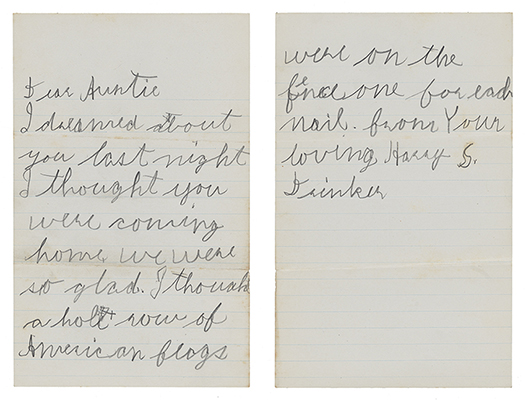 Dear Auntie
I dreamed about
you last night
I thought you
were coming
home we were
so glad. I though
a hole row of
American flogs
were on the
fence one for each
nail. from Your
loving Harry S.
Drinker